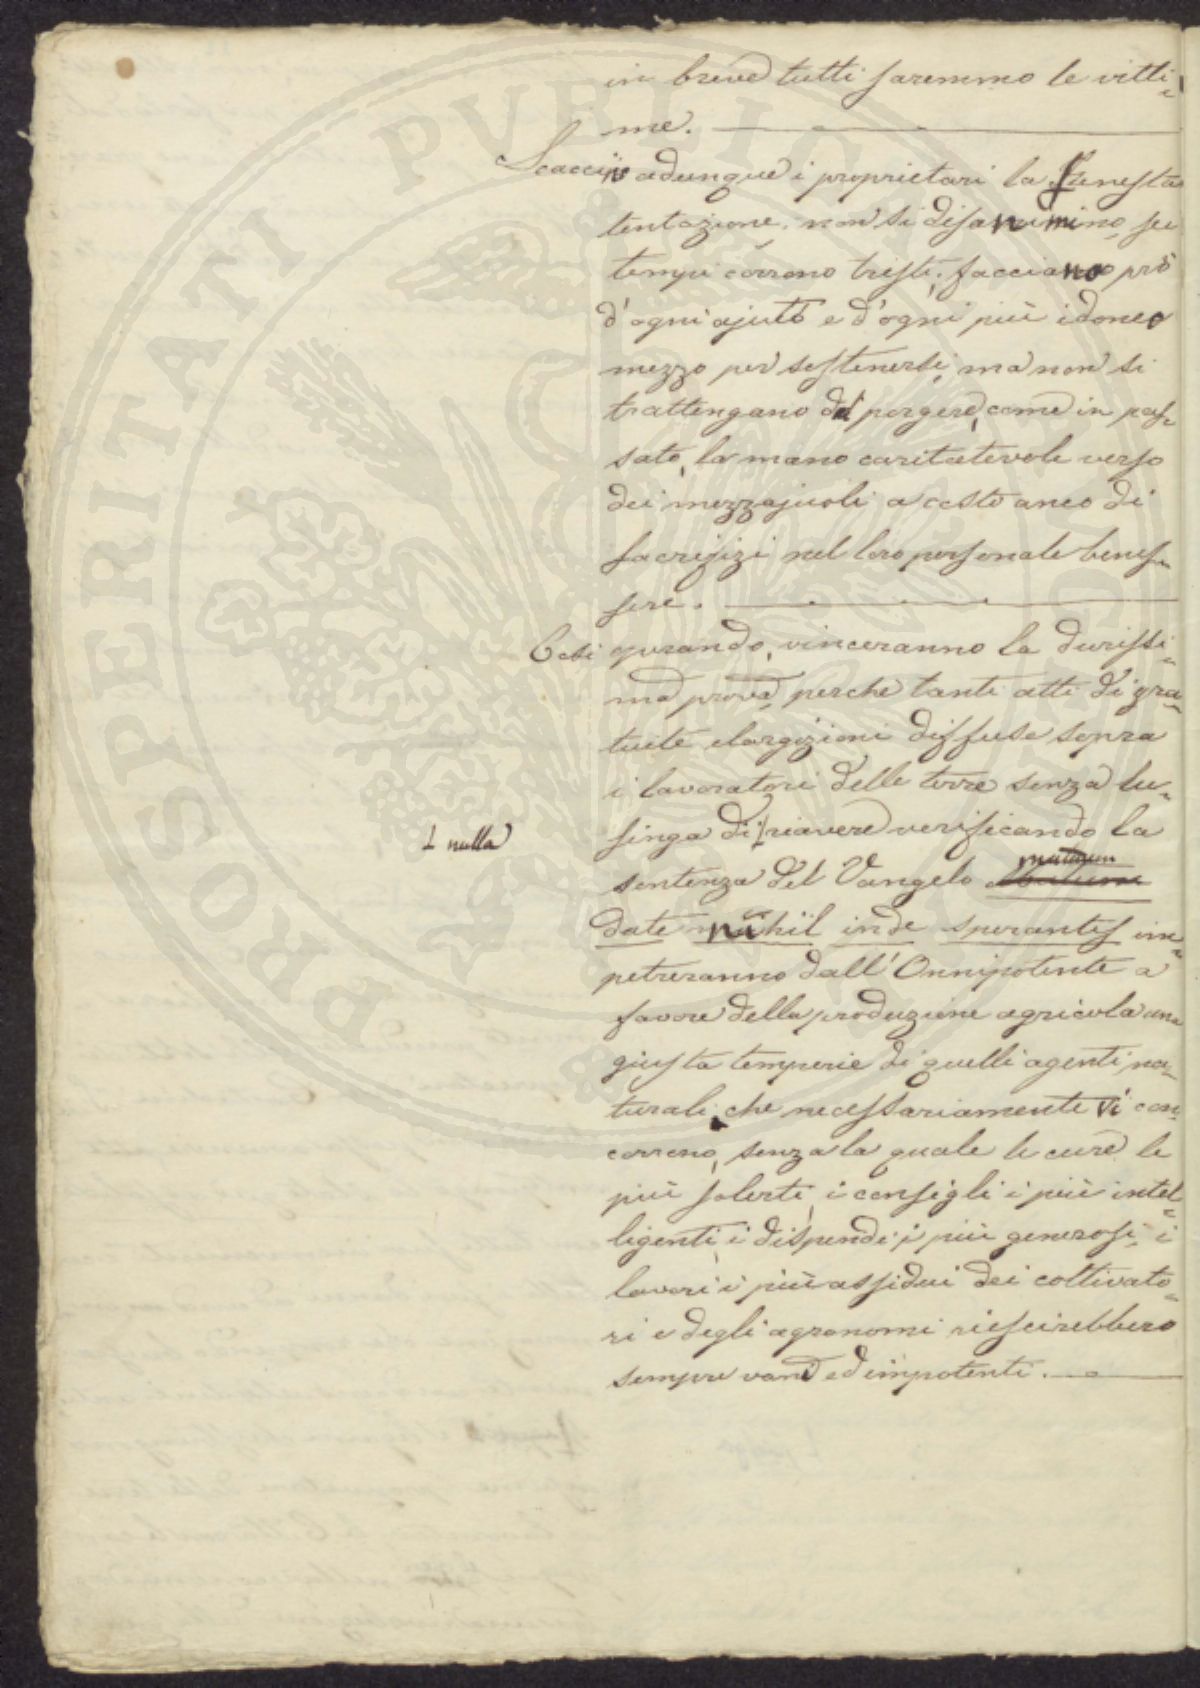 in breve tutti saremmo le vitti-
me.
Scaccin adunque i proprietari la funesta
tentazione, non si disanimino se i
tempi corrono tristi, facciano prò
d'ogni ajuto e d'ogni più idoneo
mezzo per sostenersi, ma non si
trattengano dal porgere, come in pas-
sato, la mano caritatevole verso
dei mezzajuoli a costo anco di
sacrifizi nel loro personale benes-
sere.
Così oprando, vinceranno la durissi-
ma prova, perchè tanti atti di gra-
tuite elargizioni diffuse sopra
i lavoratori delle terre senza lu-
singa di riavere verificando la
L nulla
sentenza del Vangelo mutuum
date nihil inde sperantes im-
petreranno dall'Onnipotente a
favore della produzione agricola una
giusta temperie di quelli agenti na-
turali, che necessariamente vi con-
corrono, senza la quale le cure le
più solerti, i consigli i più intel-
ligenti, i dispendi i più generosi, i
lavori i più assidui dei coltivato-
ri e degli agronomi riescirebbero
sempre vani ed impotenti.
PROSPERITATI PUBLICAE